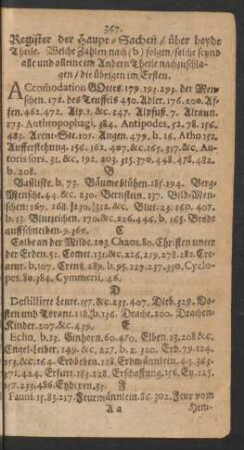 367.
Register der Haupt-Sachen / über beyde
Theile. Welche Zahlen nach (b) folgen / solche seynd
alle und alleine im Andern Theile nachzuschla-
gen / die übrigen im Ersten.
ACcomodation GOttes. 179. 193. 293. der Men-
schen. 172. des Teuffels 450. Adler. 176. 200. Af-
fen. 462. 472. Alp. 1. &c. 447. Alpfuß. 7. Alraun.
273. Anthropophagi, 484. Antipodes, 52. 78. 156.
483. Arene-See. 101. Augen. 479. b. 16. Atho 152.
Aufferstehung. 156. 161. 407. &c. 165. 317. &c. Au-
toris sors. 31. &c. 192. 203. 315. 370. 448. 478. 482.
b. 208.
B
Basiliske. b. 73. Bäume blühen. 185. 194. Berg-
Menschen. 44. &c. 230. Bernstein. 137. Bild-Men-
schen. 167. 268. &c. Blut. 23. 160. 407.
b. 13. Blutzeichen. 170. &c. 226. 446. b. 165. Brode
auffschneiden. 9. 360.
C
Calbe an der Milde. 203. Chaos. 80. Christen unter
der Erden. 51. Comet. 131. &c. 226. 259. 278. 281. Cre-
b. 107. Creutz. 289. b. 95. 227. 237. 350. Cyclo-
pes. 80. 384. Cymmerii, 46.
D
Destillirte Leute. 157. &c. 235. 407. Dieb. 329. Do-
sten und Dorant. 118. b. 136. Drache. 200. Drachen-
Kinder. 207. &c. 439.
E
Echo, b. 13. Einhorn. 60. 450. Elben. 13. 208. &c.
Engel-Leiber. 149. &c. 227. b. 2. 320. Erd. 79. 124.
153. &c. 164. Erdbeben. 128. Erdmännlein. 44. 365.
371. 424. Erfurt. 183. 228. Erschaffung. 156. Ey. 125.
157. 235. 486. Eydixen. 35.
F
Fauni. 15. 83. 217. Feurmännlein. 86. 302. Feur vom
A a Him-